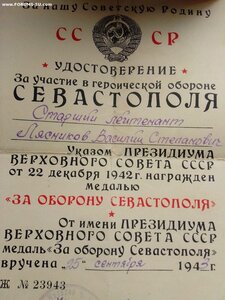 FORUMS-SU.COM
За нашу Советскую Родину
СС СР
УДОСТОВЕРЕНИЕ
За участие в героической обороне
СЕВАСТОПОЛЯ
Старший лейтенант
Лясников Василий Степанович
Указом ПРЕЗИДИУМА
ВЕРХОВНОГО СОВЕТА СССР
от 22 декабря 1942 г. награжден
медалью
«ЗА ОБОРОНУ СЕВАСТОПОЛЯ»
От имени ПРЕЗИДИУМА
ВЕРХОВНОГО СОВЕТА СССР
медаль «За оборону Севастополя»
вручена „25" сентября 194
Ж № 23943